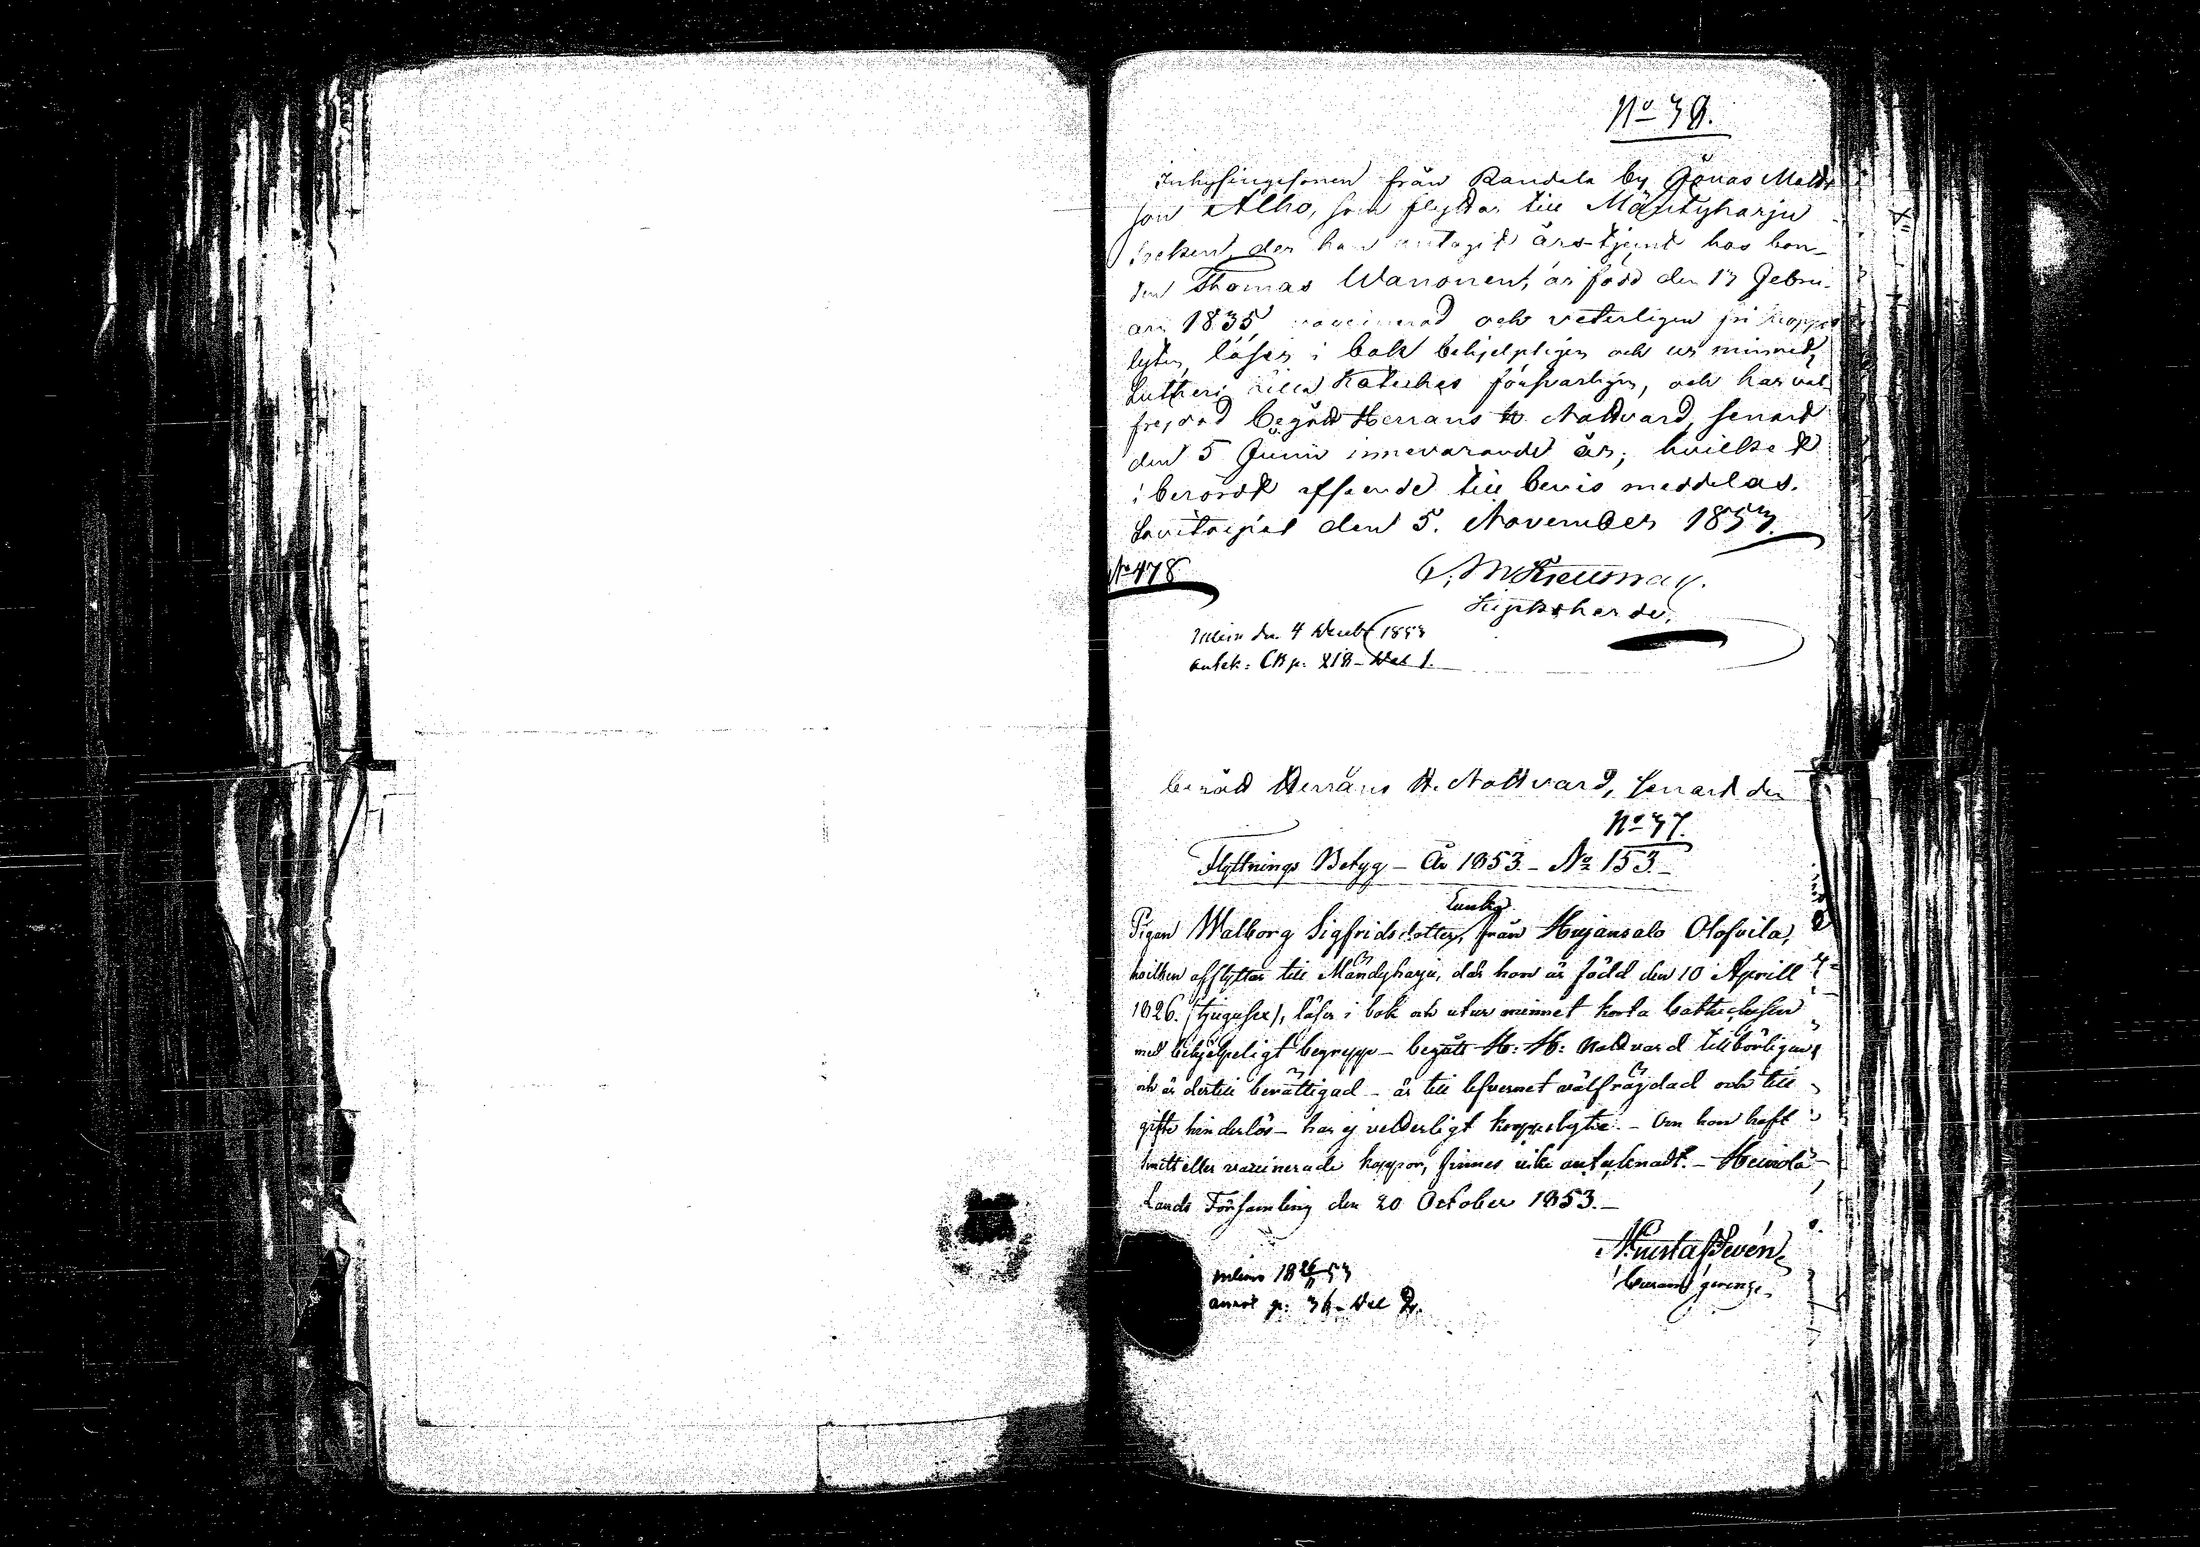 No 38.
Inhysingesonen från Kandala by Jonas Matts
son Alho, som flyttar till Mäntyharju
socken, der han antagit års-tjenst hos bon-
den Thomas Wanonen, är född den 13 Febru-
ari 1835, vaccinerad och veterligen fri kopp
lyten, läser i bok behjelpligen och ur minnet,
Lutheri lilla Kateches försvarligen, och har väl
frejdad begått Herrans H. Nattvard, senast
den 5 Junii innevarande år; hvilket
i berördt afseende till bevis meddelas.
Savitaipal den 5. November 1853.
No 478
Kyrkoherde.
Inlem den 4 Decebr 1853
antek: CB p. 218 - Del 1.
begått Herrans H. Nattvard, senast den
No 37.
Flyttnings Betyg - År 1853. - No 153. -
Pigan Walborg Sigfridsdotter, från Hujansalo Olofvila,
hvilken afflyttar till Mändyharju, där hon är född den 10 Aprill
1826. (tjugusex), läser i bok och utur minnet korta Cathechesen
med behjelpeligt begrepp - begått H: H: Nattvard tillbörligen
och är dertill berättigad - är till lefvernet välfräjdad och till
gifte hinderlös - har ej vetterligt kopplyte. - Om hon haft
smitt eller vaccinerade koppor, finnes icke antecknadt. - Heinola
Lands Församling den 20 October 1853. -
inlem 18 26/11 53
annot p. 36 - Del 2.